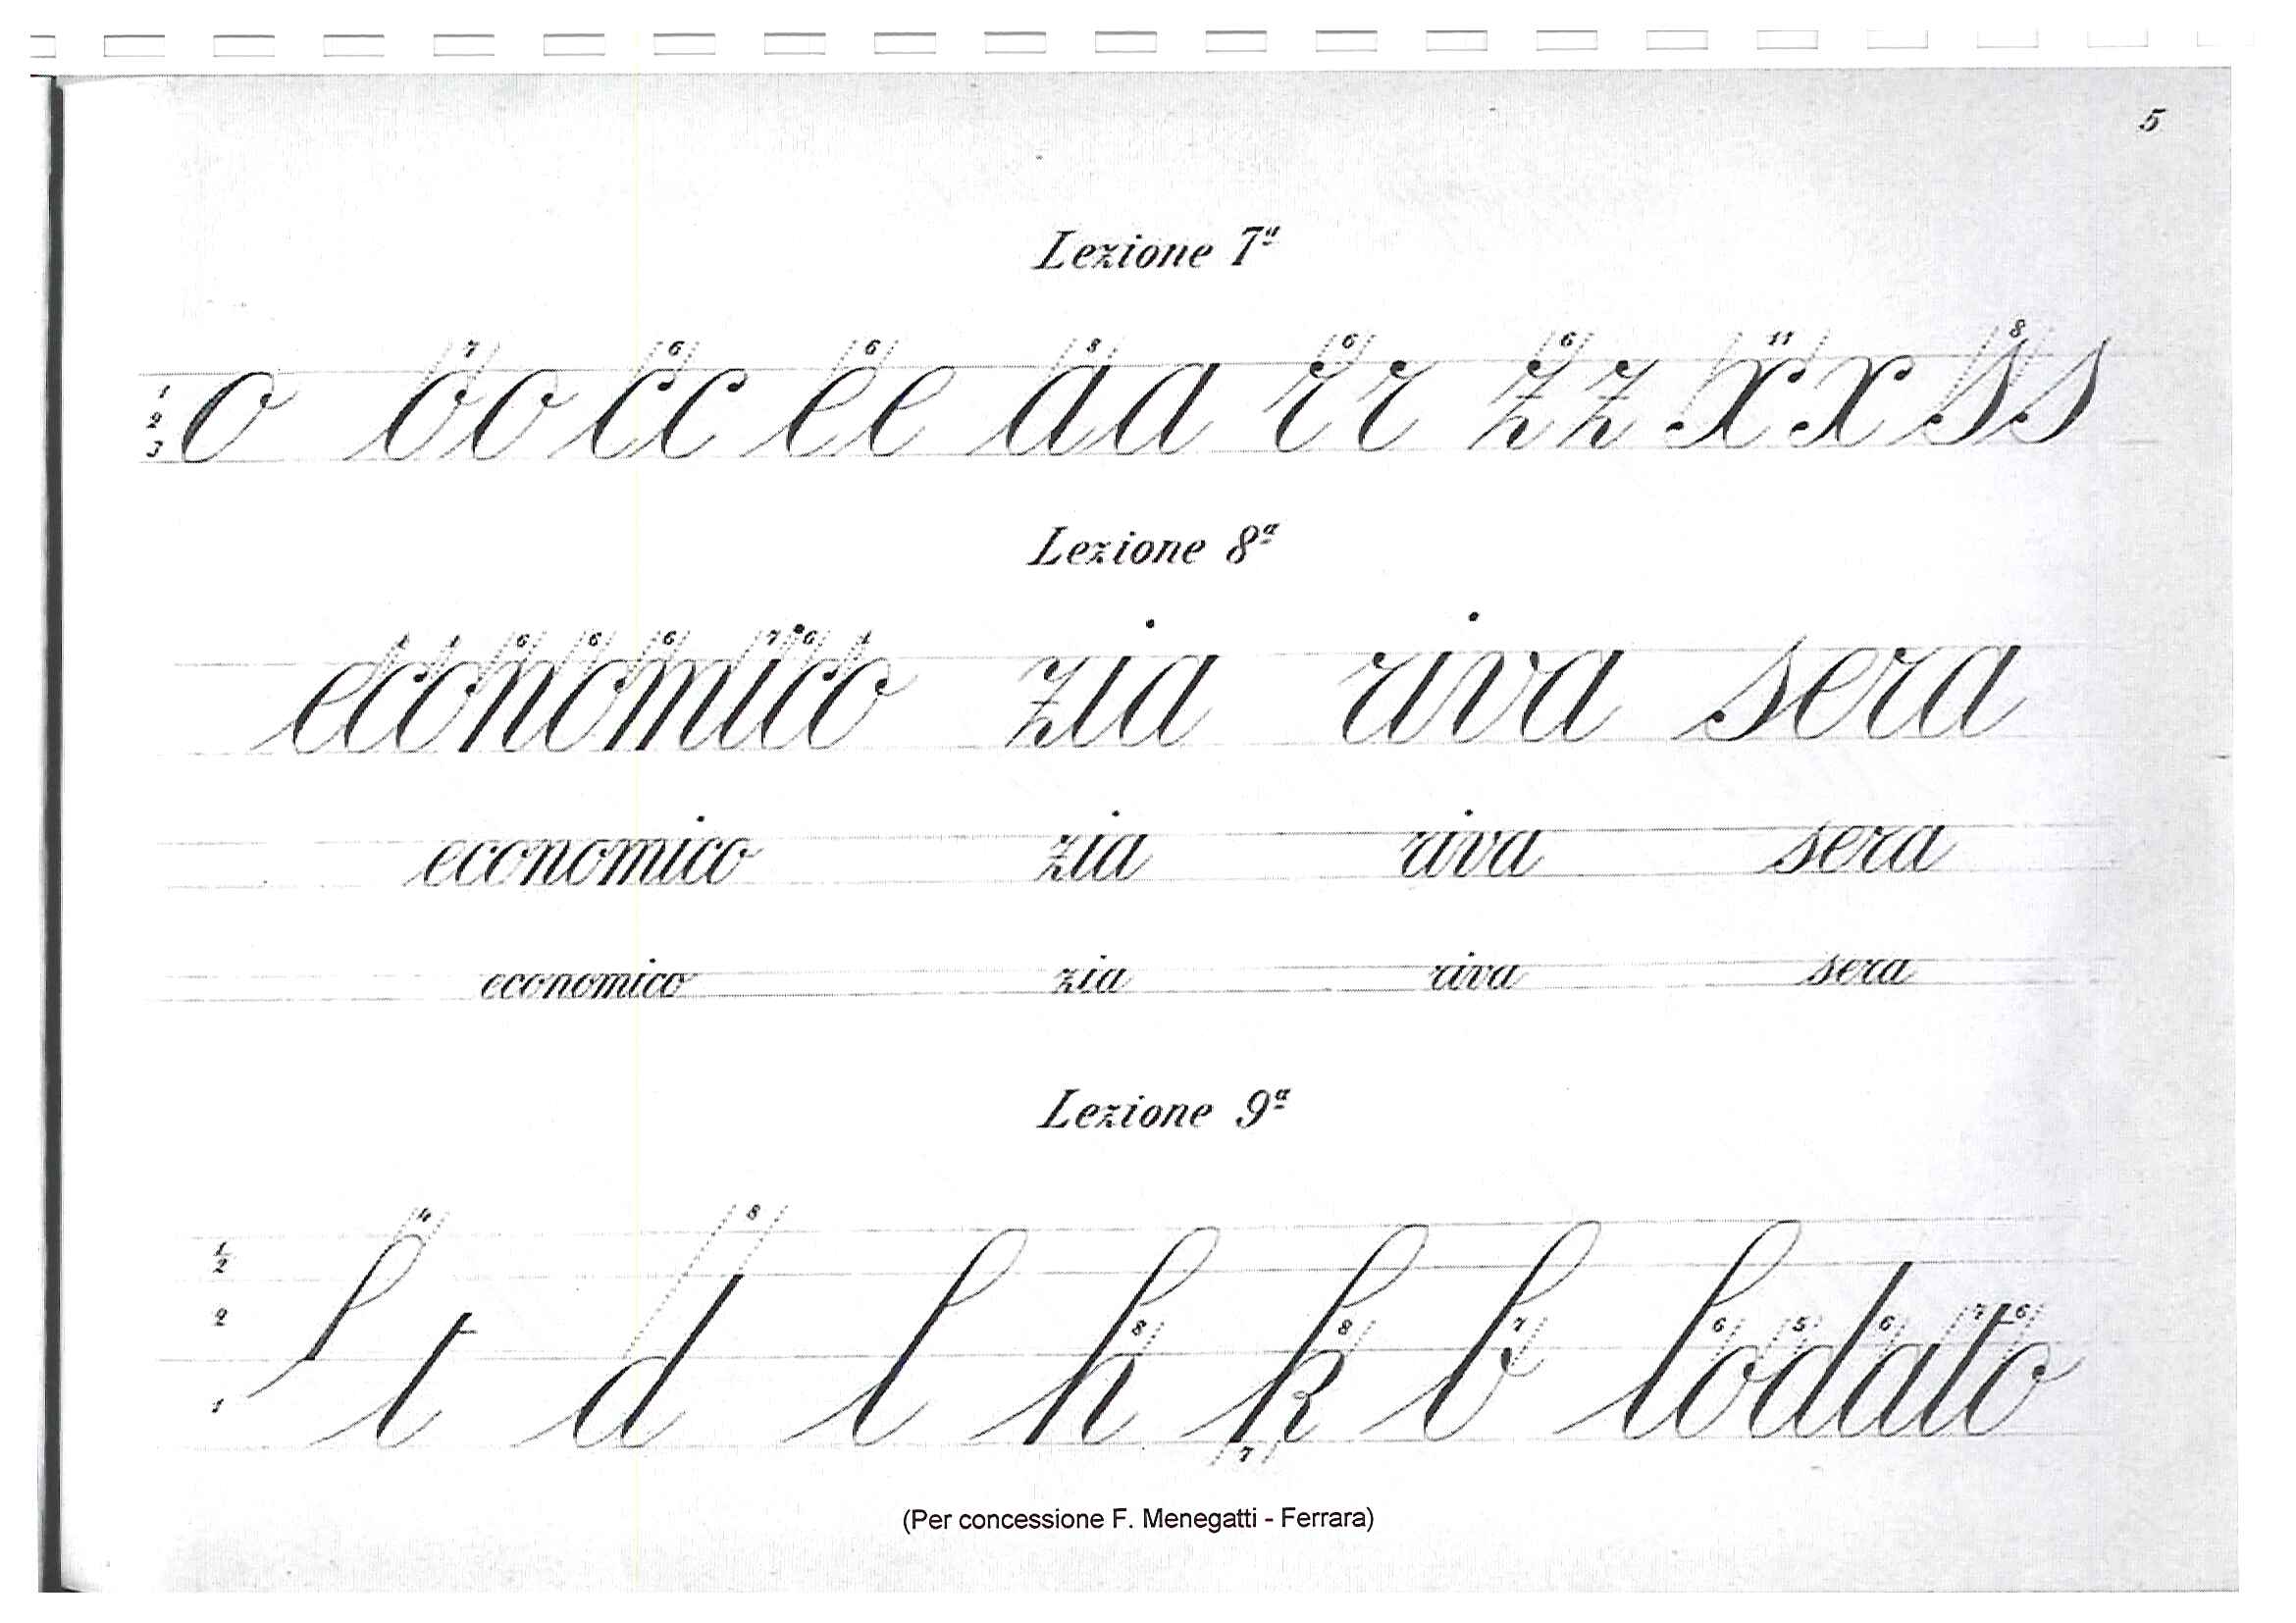 5
Lezione 7ª
7 6 6 8 6 6 11 8
1 o oo cc ee aa rr zz xx ss
2
3
Lezione 8ª
1 1 6 6 6 7 6 1
economico zia riva sera
economico zia riva sera
economico zia riva sera
Lezione 9ª
4 8
1/2
2 8 8 7 6 5 6 7 6
l t d l h k b lodato
1
7
(Per concessione F. Menegatti - Ferrara)